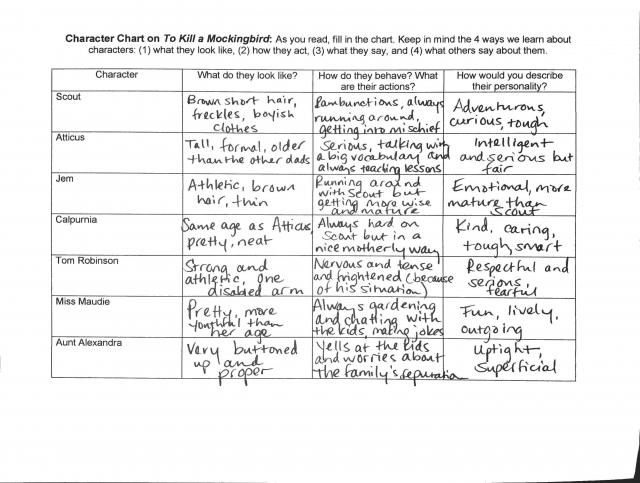 Character Chart on To Kill a Mockingbird: As you read, fill in the chart. Keep in mind the 4 ways we learn about
characters: (1) what they look like, (2) how they act, (3) what they say, and (4) what others say about them.
Character
What do they look like?
How do they behave? What
are their actions?
How would you describe
their personality?
Scout
Brown short hair,
freckles, boyish
clothes
Rambunctious, always
running around,
getting into mischief
Adventurous,
curious, tough
Atticus
Tall, formal, older
than the other dads
Serious, talking with
a big vocabulary and
always teaching lessons
Intelligent
and serious but
fair
Jem
Athletic, brown
hair, thin
Running around
with Scout but
getting more wise
and mature
Emotional, more
mature than
Scout
Calpurnia
Same age as Atticus,
pretty, neat
Always hard on
Scout but in a
nice motherly way
Kind, caring,
tough, smart
Tom Robinson
Strong and
athletic, one
disabled arm
Nervous and tense
and frightened (because
of his situation)
Respectful and
serious,
fearful
Miss Maudie
Pretty, more
youthful than
her age
Always gardening
and chatting with
the kids, making jokes
Fun, lively,
outgoing
Aunt Alexandra
Very buttoned
up and
proper
Yells at the kids
and worries about
the family's reputation
Uptight,
superficial